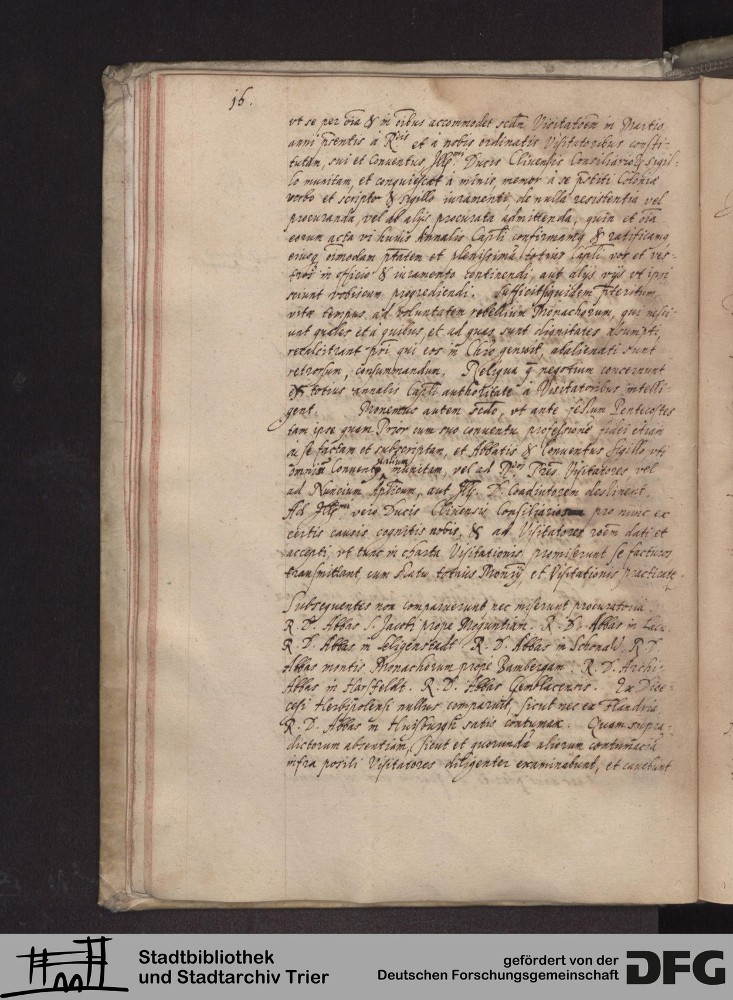 16.
vt se per oīa & in oībus accommodet scđm Visitatōēm in Martio
anni pr̄sentis a R̄dis et a nobis ordinatis Visitatoribus consti-
tutam, sui et Conuentus, Illmi Ducis Cliuensis Consiliariorū sigil-
lo munitam, et conquiescat a minis, memor a se pr̄stiti Coloniæ
verbo et scripto & sigillo iuramenti, de nulla resistentia vel
procuranda, vel ab alijs procurata admittenda, quin et oīa
eorum acta vi huius Annalis Capĺi confirmamus & ratificamus
eiusq̨ oīmodam pt̄atem et plenissimā totius Capĺi vos et ves-
tros in officio & iuramento continendi, aut alijs vijs vt ipsi
sciunt vobiscum progrediendi. Sufficit siquidem pr̄teritum
vitæ tempus ad voluntatem rebellium Monachorum, qui nesci-
unt quales et a quibus, et ad quas sunt dignitates assumpti,
recalcitrant pr̄i qui eos in Chr̄o genuit, abalienati sunt
retrorsum, consummandum. Reliqua q̨ negotium concernunt
ex totius annalis Capĺi authoritate a Visitatoribus intelli-
gent. Monemus autem secđo, vt ante festum Pentecostes
tam ipse quam Prior cum suo conuentu professionē fidei etiam
a se factam et subscriptam, et Abbatis & Conuentus sigillo vti
omnium Conuentualium munitam, vel ad Pres Visitatores vel
ad Nuncium Apĺicum, aut Ill. D. Coadiutorem destinent.
Ad Illmi vero Ducis Cliuensis Consiliarios pro nunc ex
certis causis cognitis nobis, & ad Visitatores rōēm dati et
accepti, vt tunc in charta Visitationis promiserunt se facturos
transmittant, cum statu totius Monrij et Visitationis practicatę.
Subsequentes non comparuerunt nec miserunt procuratoria.
R. D. Abbas S. Jacobi prope Moguntiam. R. D. Abbas in Lacu.
R. D. Abbas in Seligenstadt. R. D. Abbas in Schonaw. R. D.
Abbas montis Monachorum prope Bambergam. R. D. Archi-
Abbas in Harsfeldt. R. D. Abbas Gemblacensis. Ex Dioe-
cesi Herbipolensi nullus comparuit, sicut nec ex Flandria
R. D. Abbas in Huisburgh satis contumax. Quam supra-
dictorum absentiam, sicut et quorundā aliorum contumaciā
infra positi Visitatores diligenter examinabunt, et cauebunt
Stadtbibliothek
und Stadtarchiv Trier
gefördert von der
Deutschen Forschungsgemeinschaft
DFG